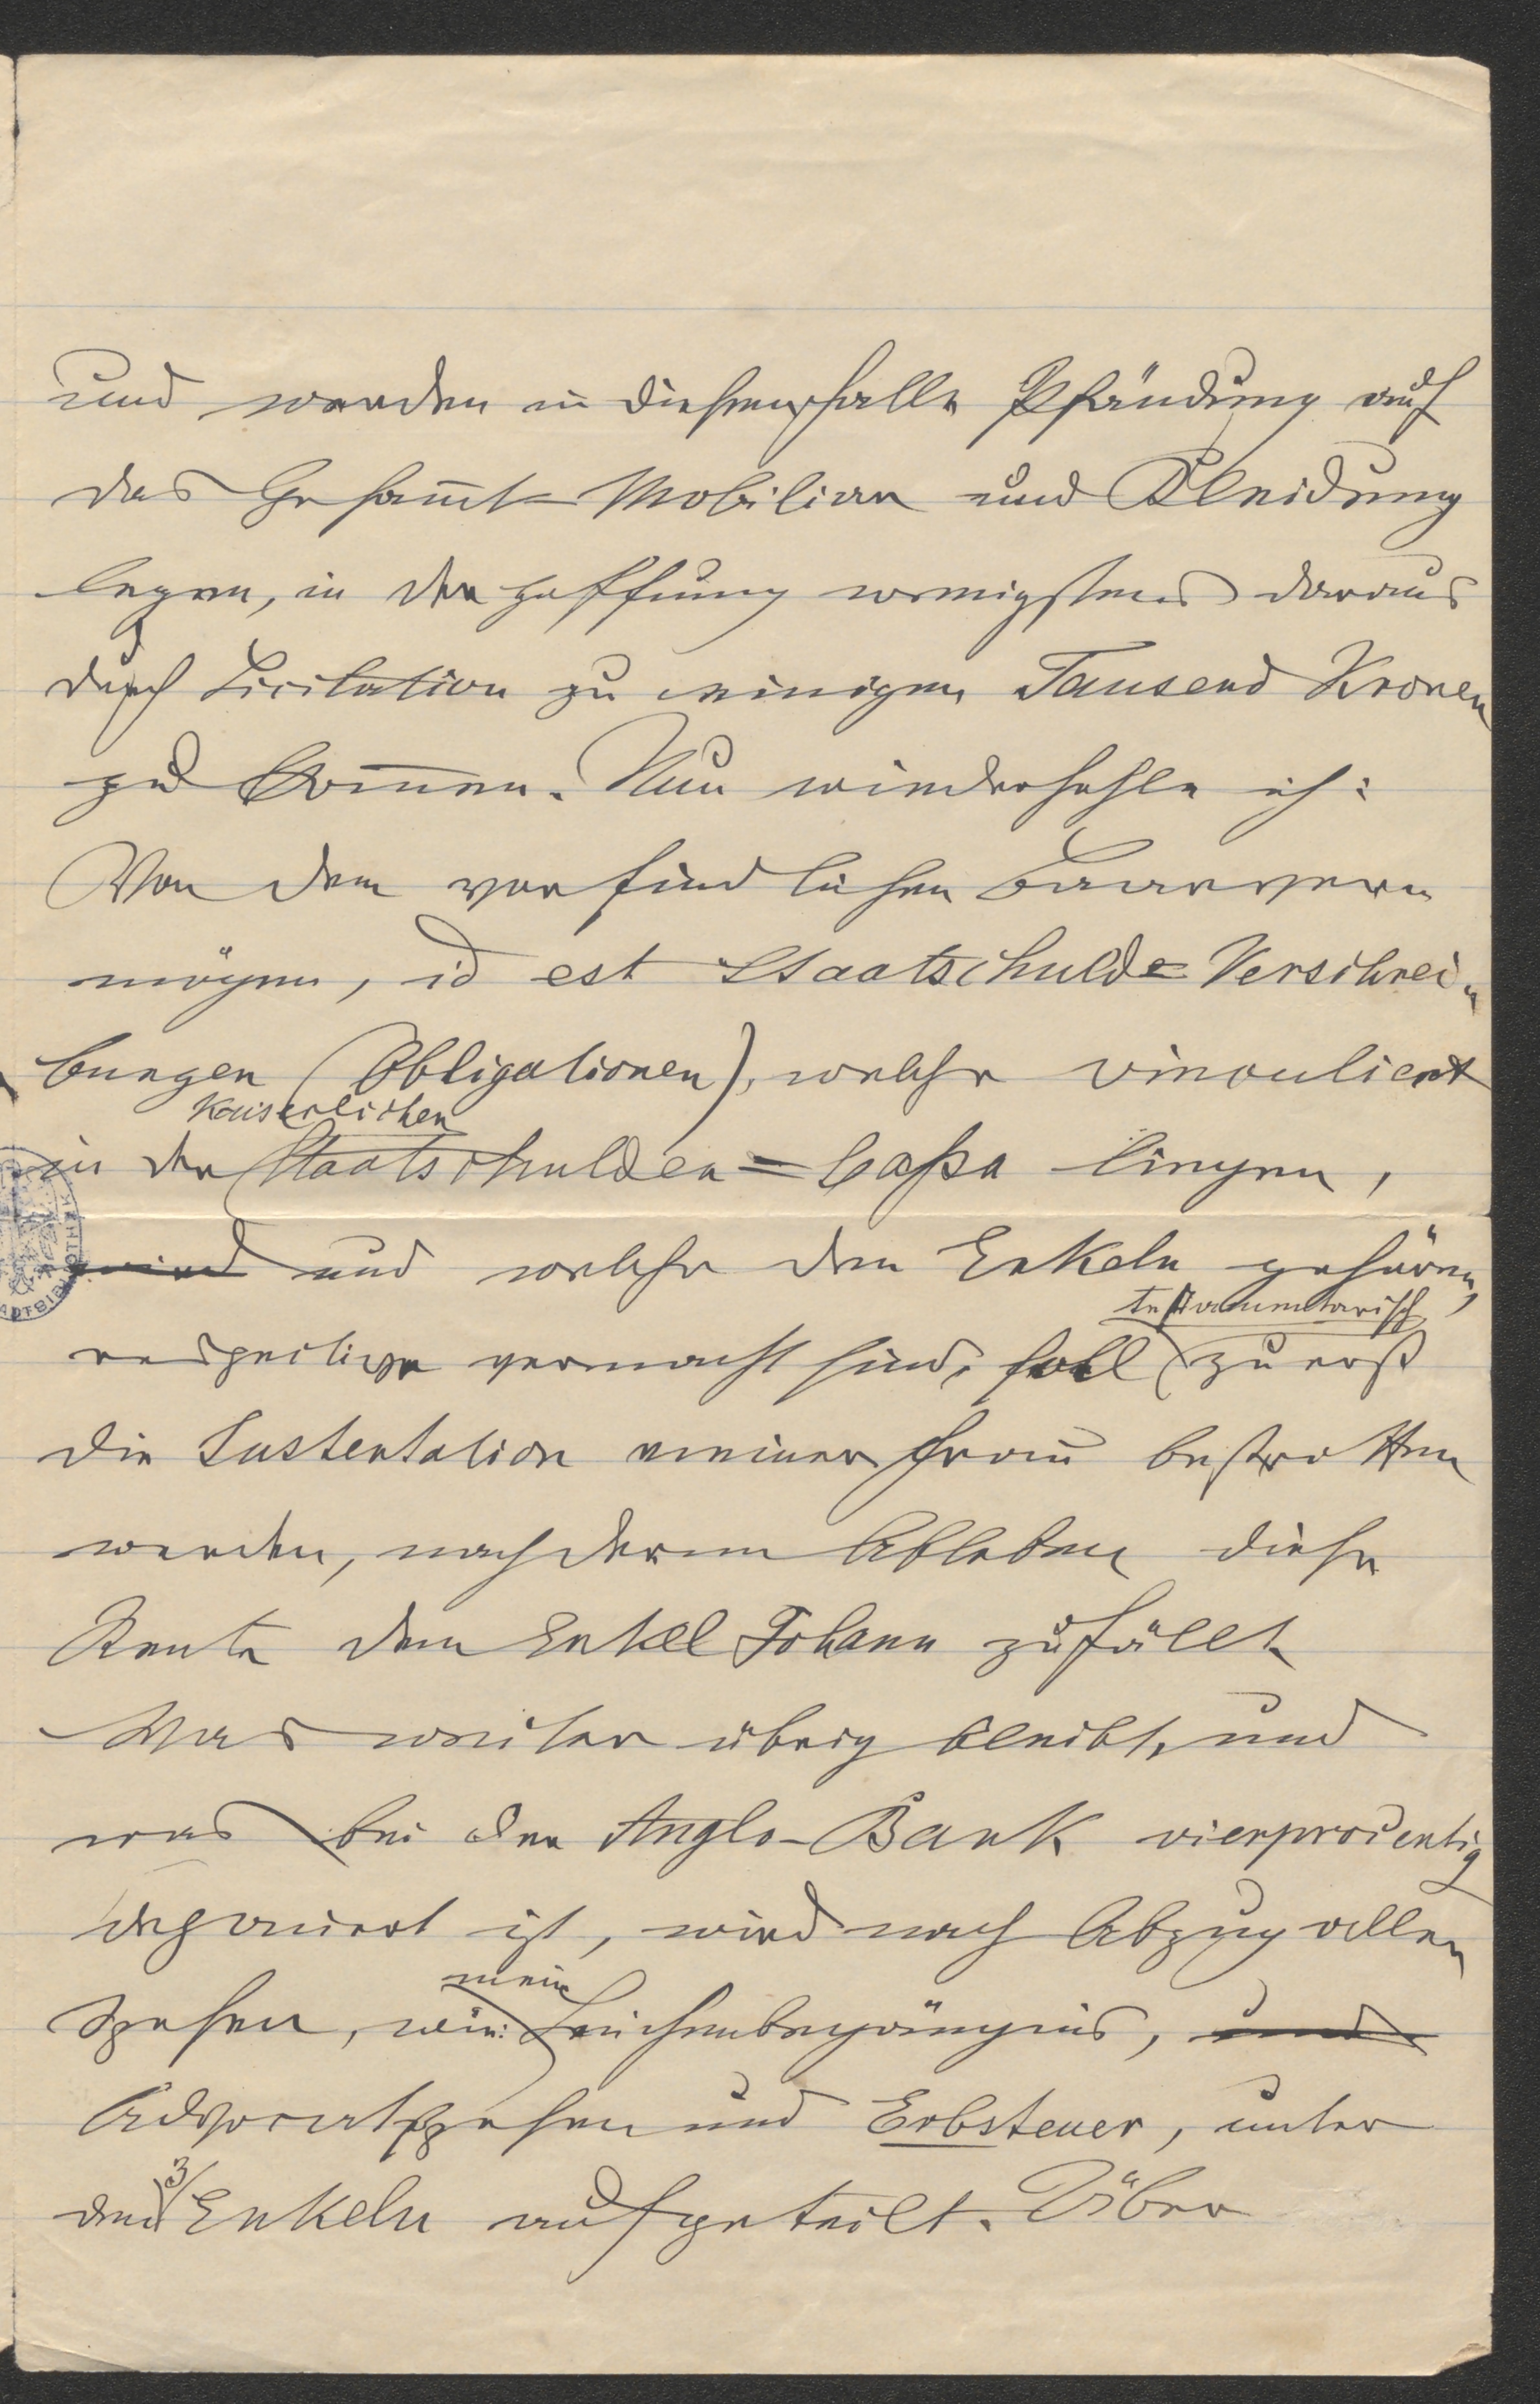 und werden in diesem falle Pfändung auf
das Gesam̄t-Mobiliar und Kleidung
legen, in der Hoffnung wenigstens daraus
durch Licitation zu einigen Tausend Kronen
zu kom̄en. Nun wiederhohle ich:
Von dem vorfindlichen Baarver-
mögen, id est Staatschuld=Verschrei-
bungen (Obligationen), welche vinculiert
kaiserlichen
in der Staatschulden=Cassa liegen,
wird und welche den Enkeln gehören,
testamentarisch
respective vermacht sind, soll zuerst
die Sustentation meiner Frau bestritten
werden, nach deren Ableben diese
Rente dem Enkel Johann zufällt.
Was weiter übrig bleibt, und
was bei der Anglo-Bank vierprocentig
deponiert ist, wird nach Abzug aller
mein
Spesen, wie: Leichenbegängnis, und
Advocatspesen und Erbsteuer, unter
3
den Enkeln aufgeteilt. Über